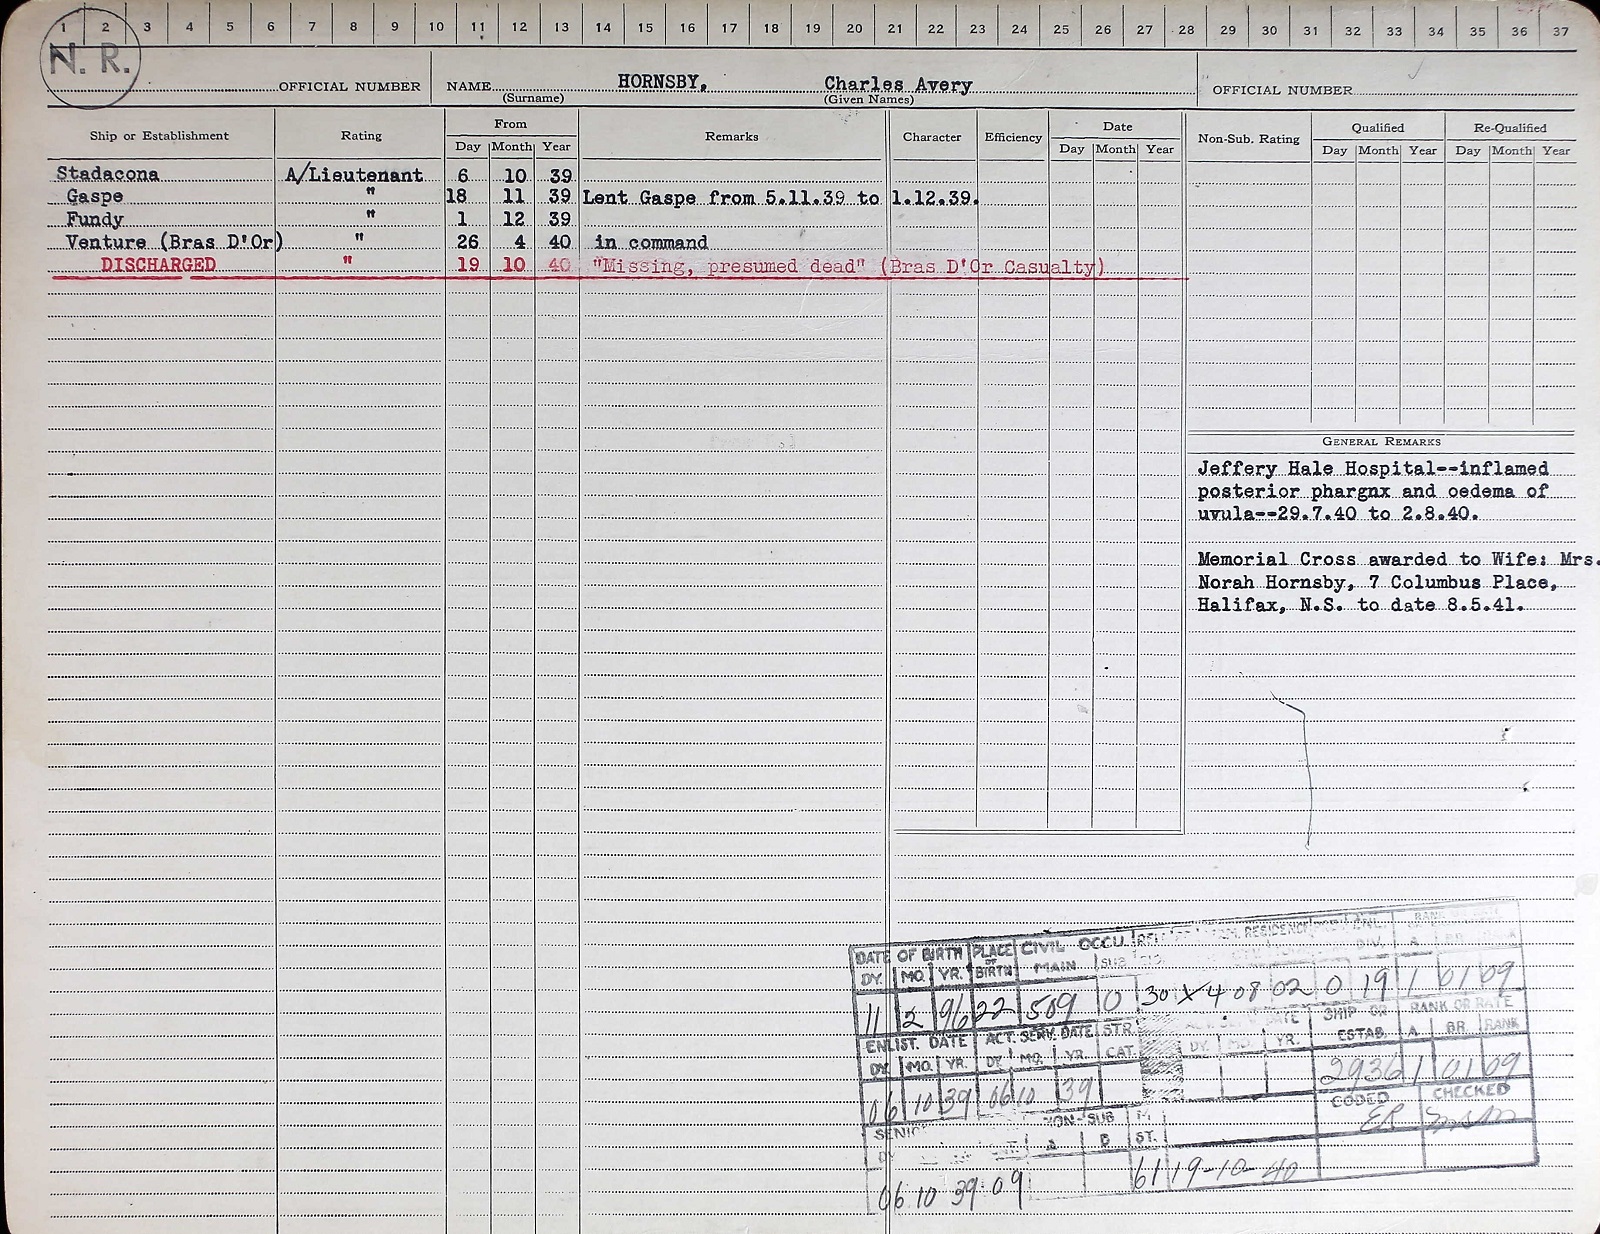 1 2 3 4 5 6 7 8 9 10 11 12 13 14 15 16 17 18 19 20 21 22 23 24 25 26 27 28 29 30 31 32 33 34 35 36 37
N. R.
OFFICIAL NUMBER NAME HORNSBY, Charles Avery OFFICIAL NUMBER
(Surname) (Given Names)
Ship or Establishment Rating From Remarks Character Efficiency Date Non-Sub. Rating Qualified Re-Qualified
Day Month Year Day Month Year Day Month Year Day Month Year
Stadacona A/Lieutenant 6 10 39
Gaspe " 18 11 39 Lent Gaspe from 5.11.39 to 1.12.39.
Fundy " 1 12 39
Venture (Bras D'Or) " 26 4 40 in command
DISCHARGED " 19 10 40 "Missing, presumed dead" (Bras D'Or Casualty)
GENERAL REMARKS
Jeffery Hale Hospital--inflamed
posterior phargnx and oedema of
uvula--29.7.40 to 2.8.40.
Memorial Cross awarded to Wife: Mrs.
Norah Hornsby, 7 Columbus Place,
Halifax, N.S. to date 8.5.41.
DATE OF BIRTH PLACE OF BIRTH CIVIL OCCU. RESIDENCE
DY. MO. YR. MAIN SUB DIV. A
11 2 96 22 589 0 30 X 4 08 02 0 19 1 01 09
ENLIST. DATE ACT. SERV. DATE STR. CAT. DATE SHIP OR ESTAB. RANK OR RATE
DY. MO. YR. DY. MO. YR. DY. MO. YR. A BR. RANK
06 10 39 06 10 39 2936 1 01 09
CODED CHECKED
ER
NON-SUB
A B ST.
06 10 39 09 61 19-10-40